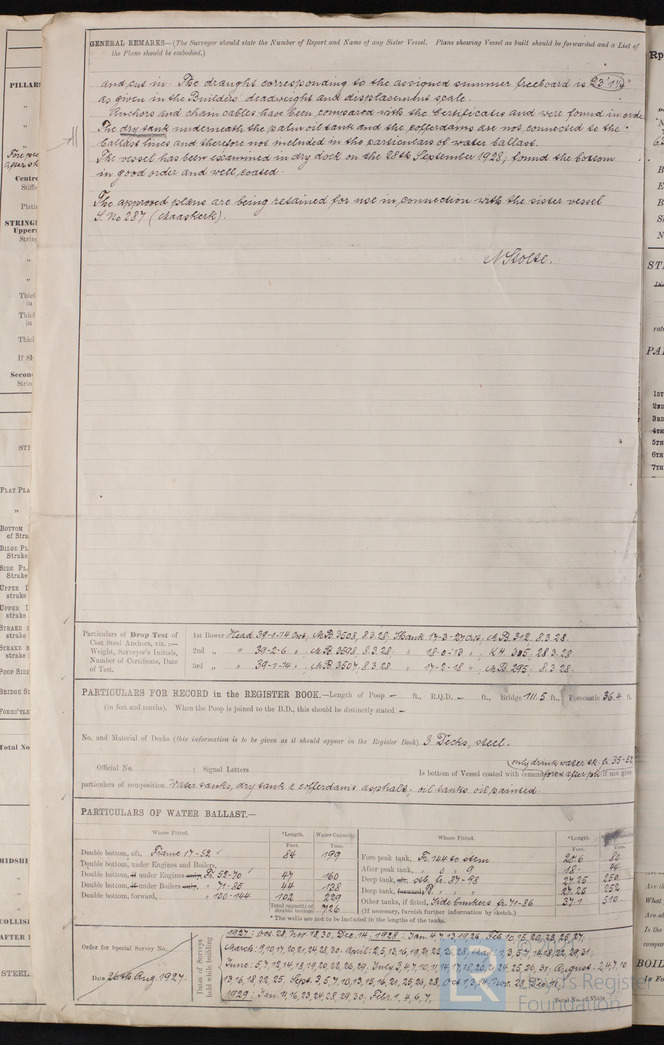 GENERAL REMARKS—(The Surveyor should state the Number of Report and Name of any Sister Vessel. Plans showing Vessel as built should be forwarded and a List of
the Plans should be embodied.)
and cut in. The draught corresponding to the assigned summer freeboard is 23'
as given in the Builders' deadweight and displacement scale.
Anchors and chain cables have been compared with the Certificates and were found in order
The dry tank underneath the palm oil tank and the cofferdams are not connected to the
ballast lines and therefore not included in the particulars of water ballast.
The vessel has been examined in dry dock on the 28th September 1928, found the bottom
in good order and well coated.
The approved plans are being retained for use in connection with the sister vessel
S. No 287 (Maaskerk).
Particulars of Drop Test of
Cast Steel Anchors, viz.:—
Weight, Surveyor's Initials,
Number of Certificate, Date
of Test.
1st Bower Head 39-1-14 , 3508, 8.3.28. Shank 17-3-27 , 312, 8.3.28.
2nd " " 39-2-6 " 3508, 8.3.28 " 18-0-13 " 28.3.28
3rd " " 39-1-14 " 3507, 8.3.28 " 17-2-18 " 295, 8.3.28
PARTICULARS FOR RECORD in the REGISTER BOOK.—Length of Poop — ft., R.Q.D. — ft., Bridge 111.5 ft., Forecastle 36.4 ft.
(in feet and tenths). When the Poop is joined to the B.D., this should be distinctly stated. —
No. and Material of Decks (this information is to be given as it should appear in the Register Book) 3 Decks, steel.
only drink water tk. fr. 35-52
Official No. ; Signal Letters Is bottom of Vessel coated with cement fore & after pk if not give
particulars of composition Water tanks, dry tank & cofferdams asphalt; oil tanks oil painted.
PARTICULARS OF WATER BALLAST.—
Where Fitted. *Length. Water Capacity. Where Fitted. *Length.
Feet. Tons. Feet. Tons.
Double bottom, aft, Frame 17-52 84 199
Double bottom, under Engines and Boilers,
Double bottom, if under Engines only, Fr. 52-70 47 160
Double bottom, if under Boilers only, " 71-86 44 138
Double bottom, forward, " 100-144 102 229
Total capacity of double bottom 726
Fore peak tank, Fr. 144 to stem 20.6 80
After peak tank, " 0 " 9 18.- 44
Deep tank, aft, stb. fr. 37-98 27.25 250
Deep tank, forward, P. " " " 27.25 252
Other tanks, if fitted, Side bunkers fr. 71-86 37.1 510
(If necessary, furnish further information by sketch.)
* The wells are not to be included in the lengths of the tanks.
Order for Special Survey No.
Date 26th Aug 1927.
Dates of Surveys
held while building
1927: Oct. 28. Nov. 18, 30. Dec. 14. 1928: Jan. 4, 7, 13, 19, 26. Feb. 10, 15, 20, 23, 25, 27,
March: 9, 10, 17, 20, 21, 24, 28, 30. April: 2, 5, 13, 16, 19, 21, 22, 26, 28. May: 1, 3, 5, 7, 14, 18, 22, 29, 31,
June: 5, 7, 12, 14, 18, 19, 20, 22, 26, 29. July 3, 4, 7, 10, 11, 14, 17, 18, 20, 21, 24, 25, 26, 31. August: 2, 4, 7, 10
13, 16, 18, 22, 25. Sept. 3, 5, 7, 10, 13, 15, 16, 21, 25, 26, 28. Oct. 1, 3, Nov. 23. Dec. 11.
1929: Jan. 11, 16, 23, 24, 28, 29, 30; Febr. 1, 4, 6, 7,
Total No. of Visits
LR
Lloyd's Register
Foundation